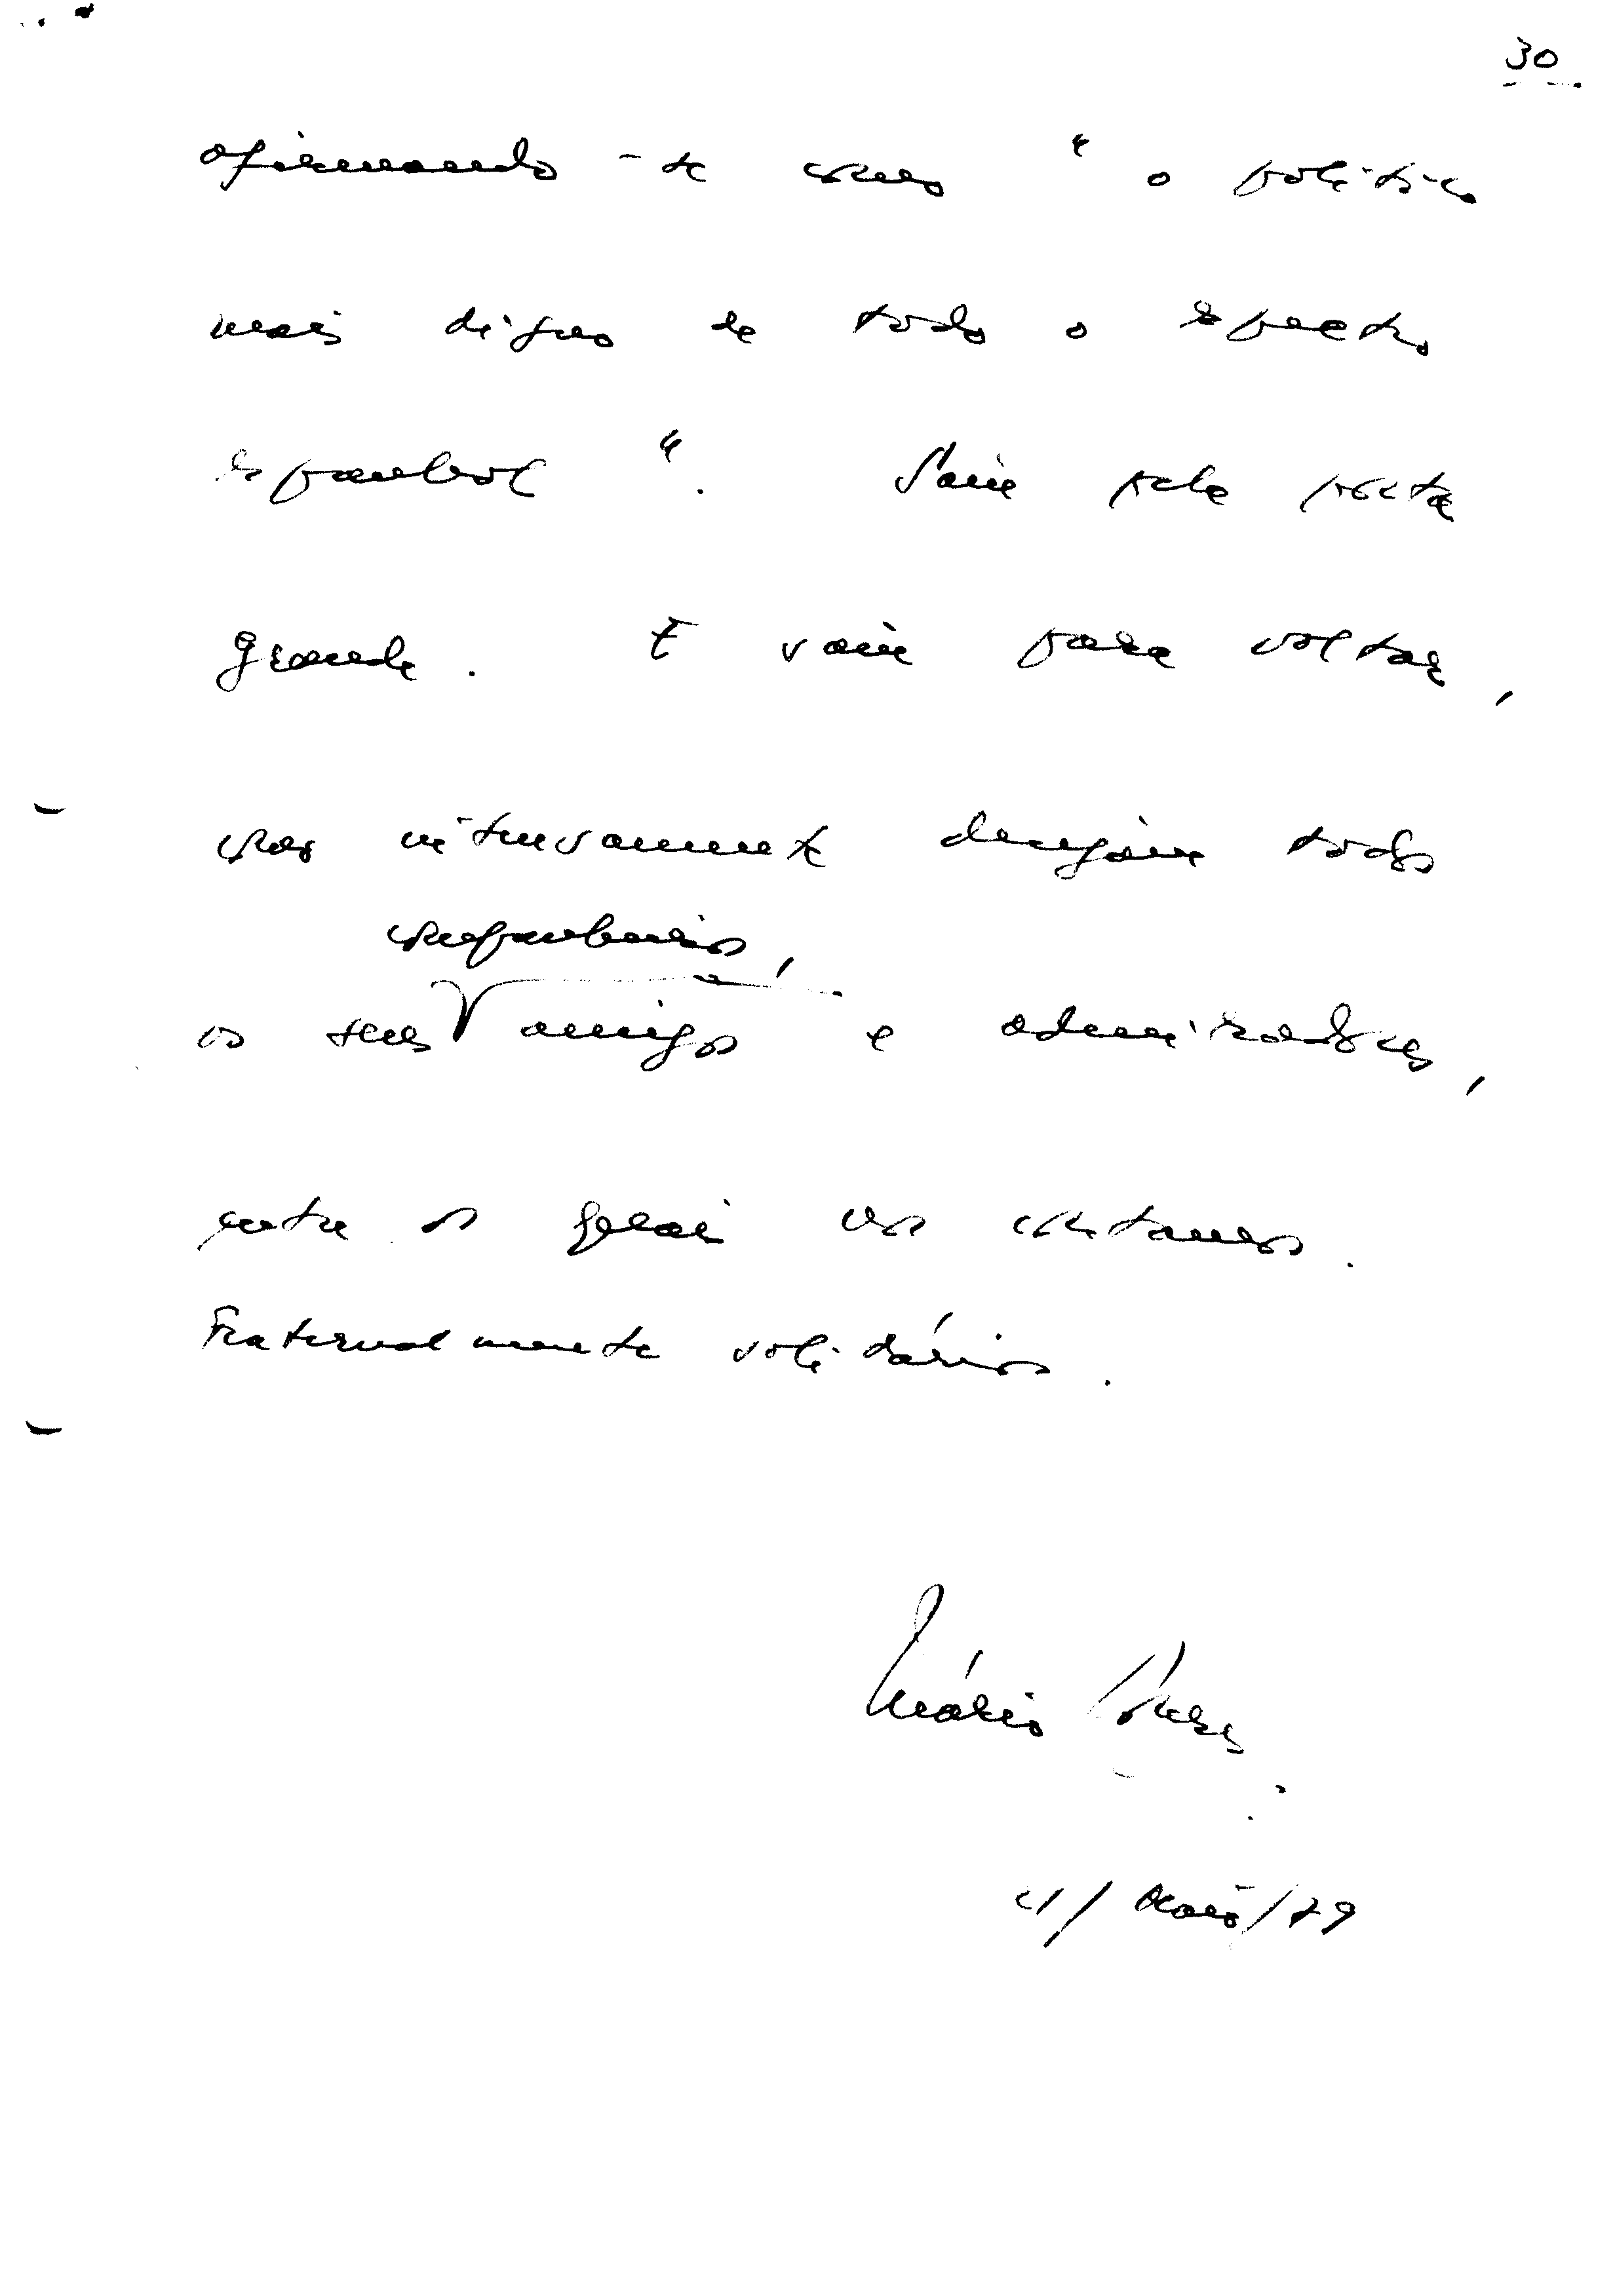 30
afirmando-se como "o político
mais digno de todo o espectro
espanhol". Saiu pela porta
grande. E saiu para voltar,
como intensamente desejam todos
companheiros,
os seus amigos e admiradores,
entre os quais nos contamos.
Fraternalmente solidários.
Mário Soares
21/Maio/79